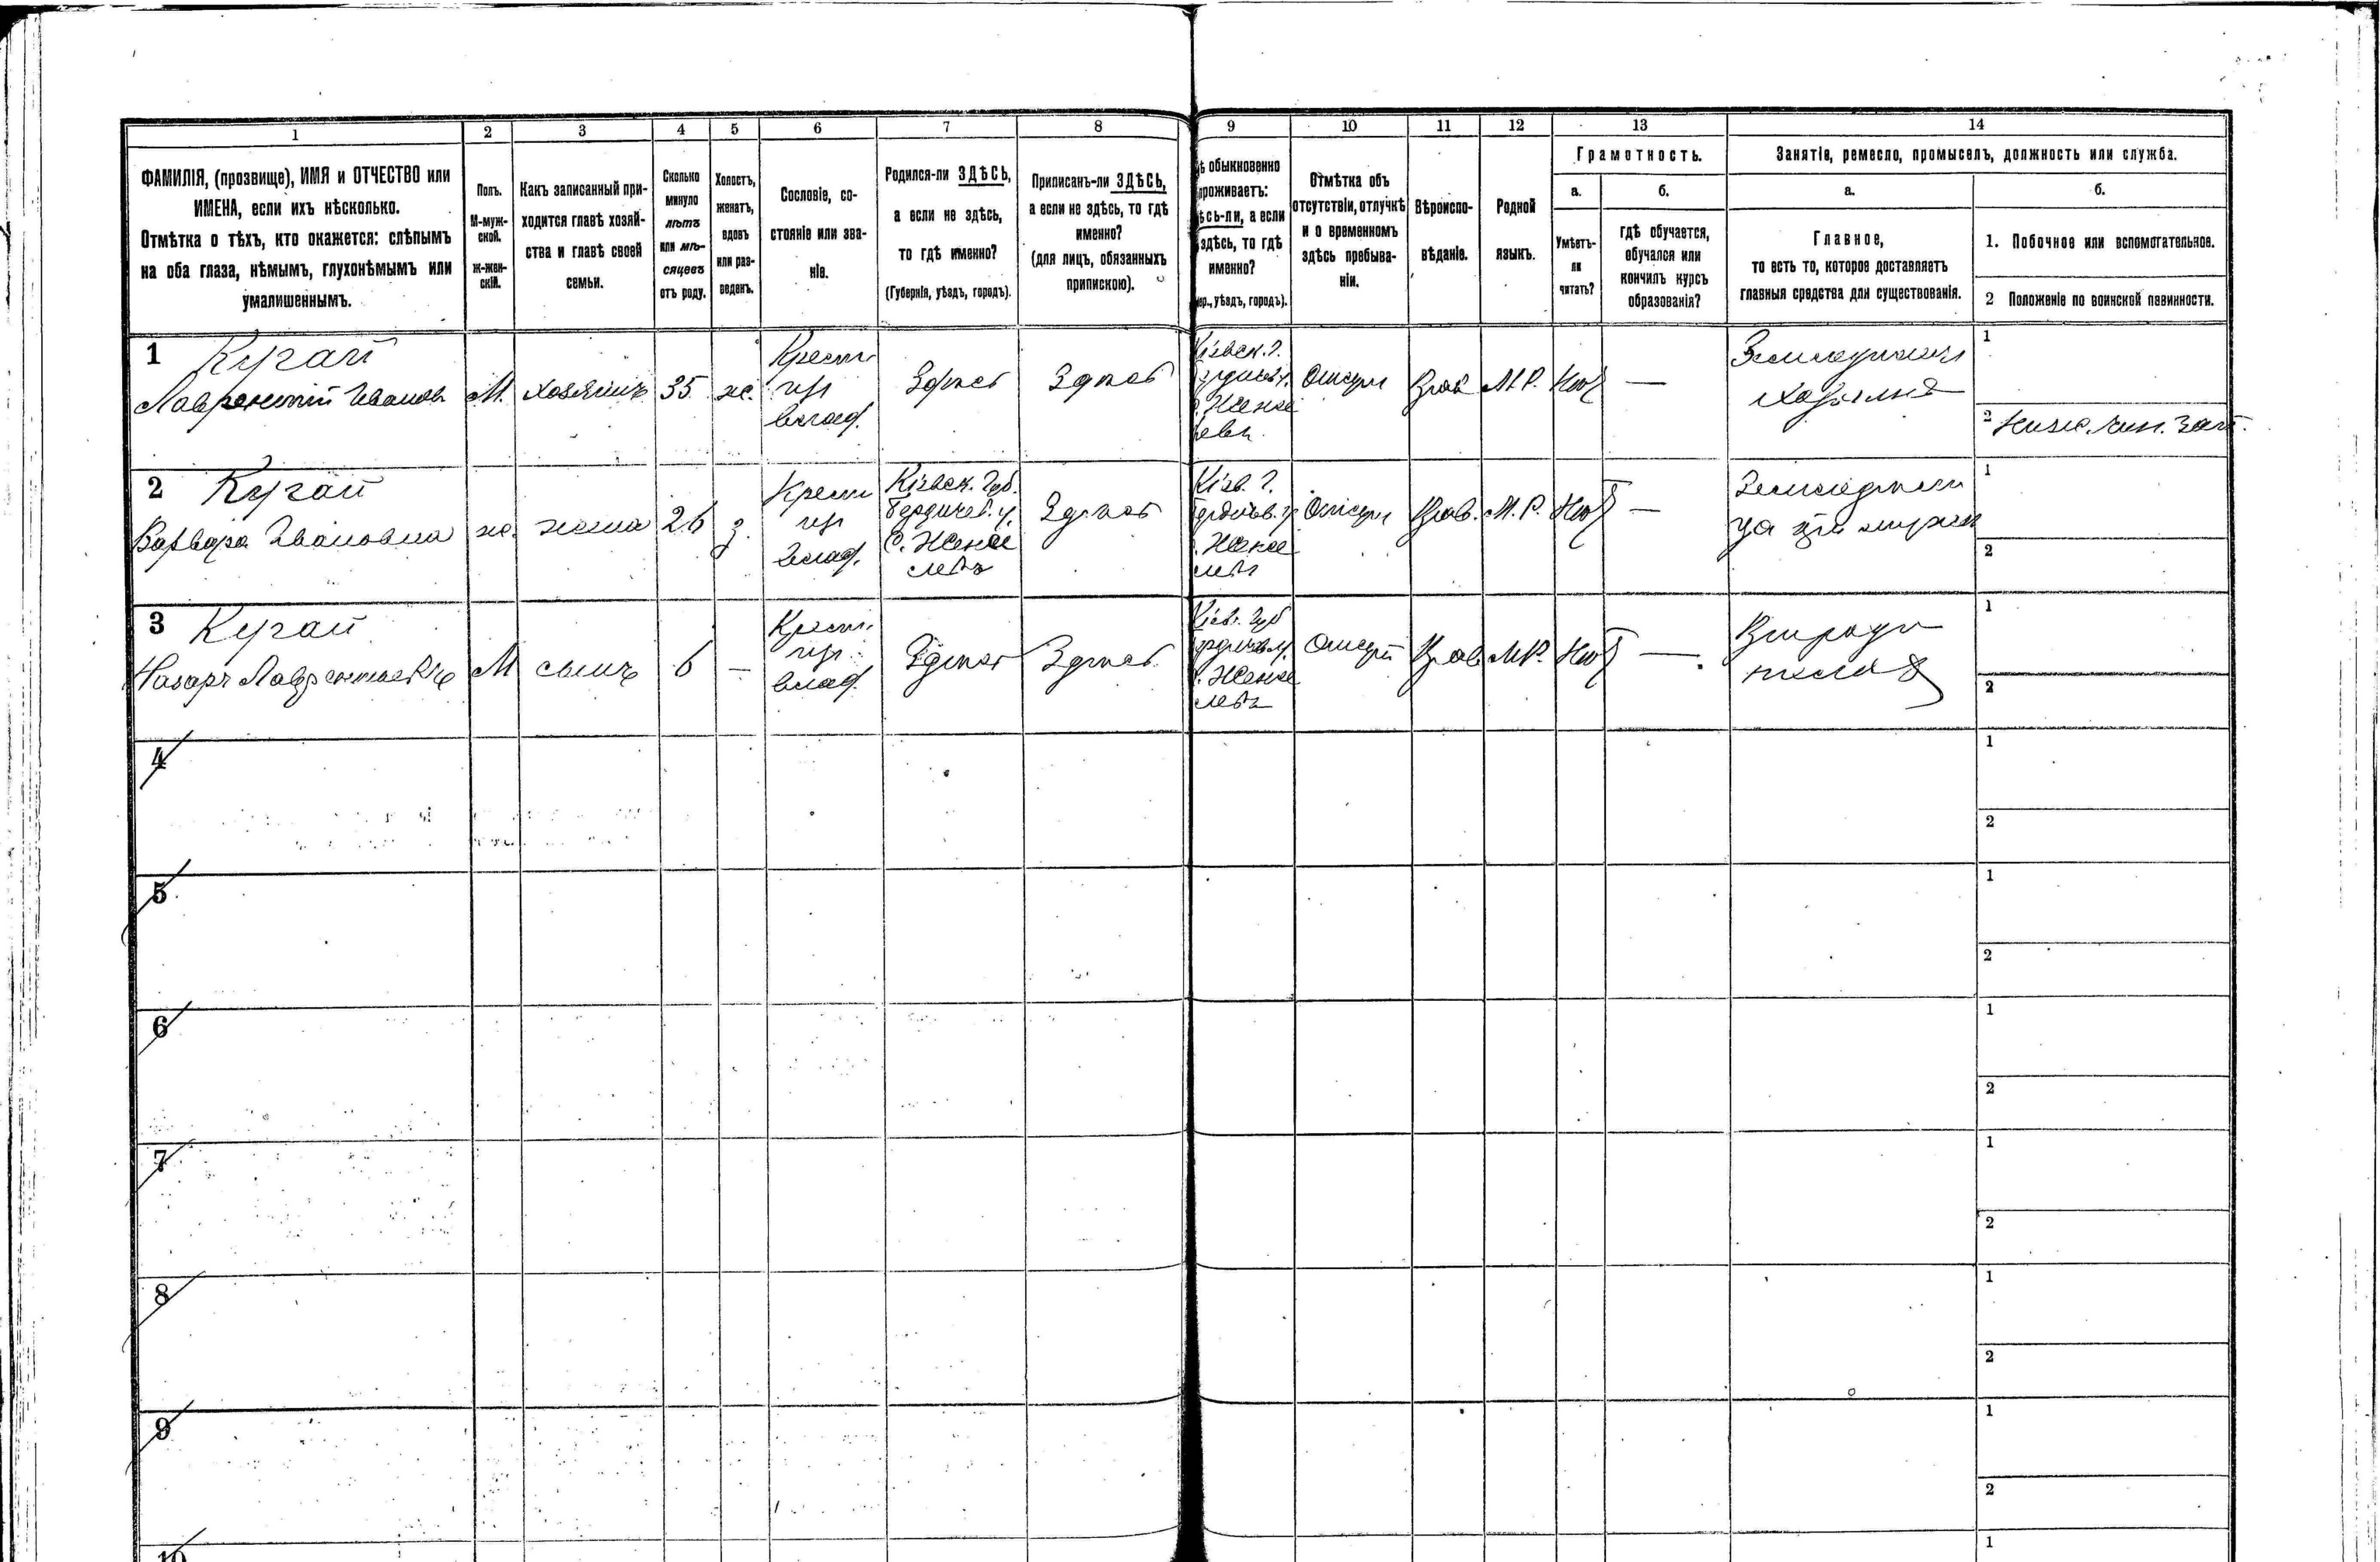 1 2 3 4 5 6 7 8 9 10 11 12 13 14
ФАМИЛІЯ, (прозвище), ИМЯ и ОТЧЕСТВО или
ИМЕНА, если ихъ нѣсколько.
Отмѣтка о тѣхъ, кто окажется: слѣпымъ
на оба глаза, нѣмымъ, глухонѣмымъ или
умалишеннымъ.
Полъ.
М-муж-
ской.
Ж-жен-
скій.
Какъ записанный при-
ходится главѣ хозяй-
ства и главѣ своей
семьи.
Сколько
минуло
лѣтъ
или мѣ-
сяцевъ
отъ роду.
Холостъ,
женатъ,
вдовъ
или раз-
веденъ.
Сословіе, со-
стояніе или зва-
ніе.
Родился-ли ЗДѢСЬ,
а если не здѣсь,
то гдѣ именно?
(Губернія, уѣздъ, городъ).
Приписанъ-ли ЗДѢСЬ,
а если не здѣсь, то гдѣ
именно?
(для лицъ, обязанныхъ
припискою).
ѣ обыкновенно
проживаетъ:
ѣсь-ли, а если
здѣсь, то гдѣ
именно?
ер., уѣздъ, городъ).
Отмѣтка объ
отсутствіи, отлучкѣ
и о временномъ
здѣсь пребыва-
ніи.
Вѣроиспо-
вѣданіе.
Родной
языкъ.
Грамотность.
а.
Умѣетъ-
ли
читать?
б.
гдѣ обучается,
обучался или
кончилъ курсъ
образованія?
Занятіе, ремесло, промыселъ, должность или служба.
а.
Главное,
то есть то, которое доставляетъ
главныя средства для существованія.
б.
1. Побочное или вспомогательное.
2 Положеніе по воинской повинности.
1 Кугай
Лаврентій Иванов
М.
хозяинъ
35
ж.
Крест.
влад.
Здѣсь
Здѣсь
Кіевск. г.
Прав
М.Р.
Нѣт
—
хозяинъ
1
2 Нижн. чин. зап.
2 Кугай
Варвара Ивановна
ж.
жена
26
з.
Крест
влад.
Кіевск. Губ.
Бердичев. у.
с. Женше
левъ
Здѣсь
Кіев. г.
Прав.
М.Р.
Нѣт
—
1
2
3 Кугай
Назаръ Лаврентіевъ
М
сынъ
6
—
Крест.
влад.
Здѣсь
Здѣсь
Кіев. Губ
Прав
М.Р.
Нѣт
—
1
2
4
1
2
5
1
2
6
1
2
7
1
2
8
1
2
9
1
2
10
1